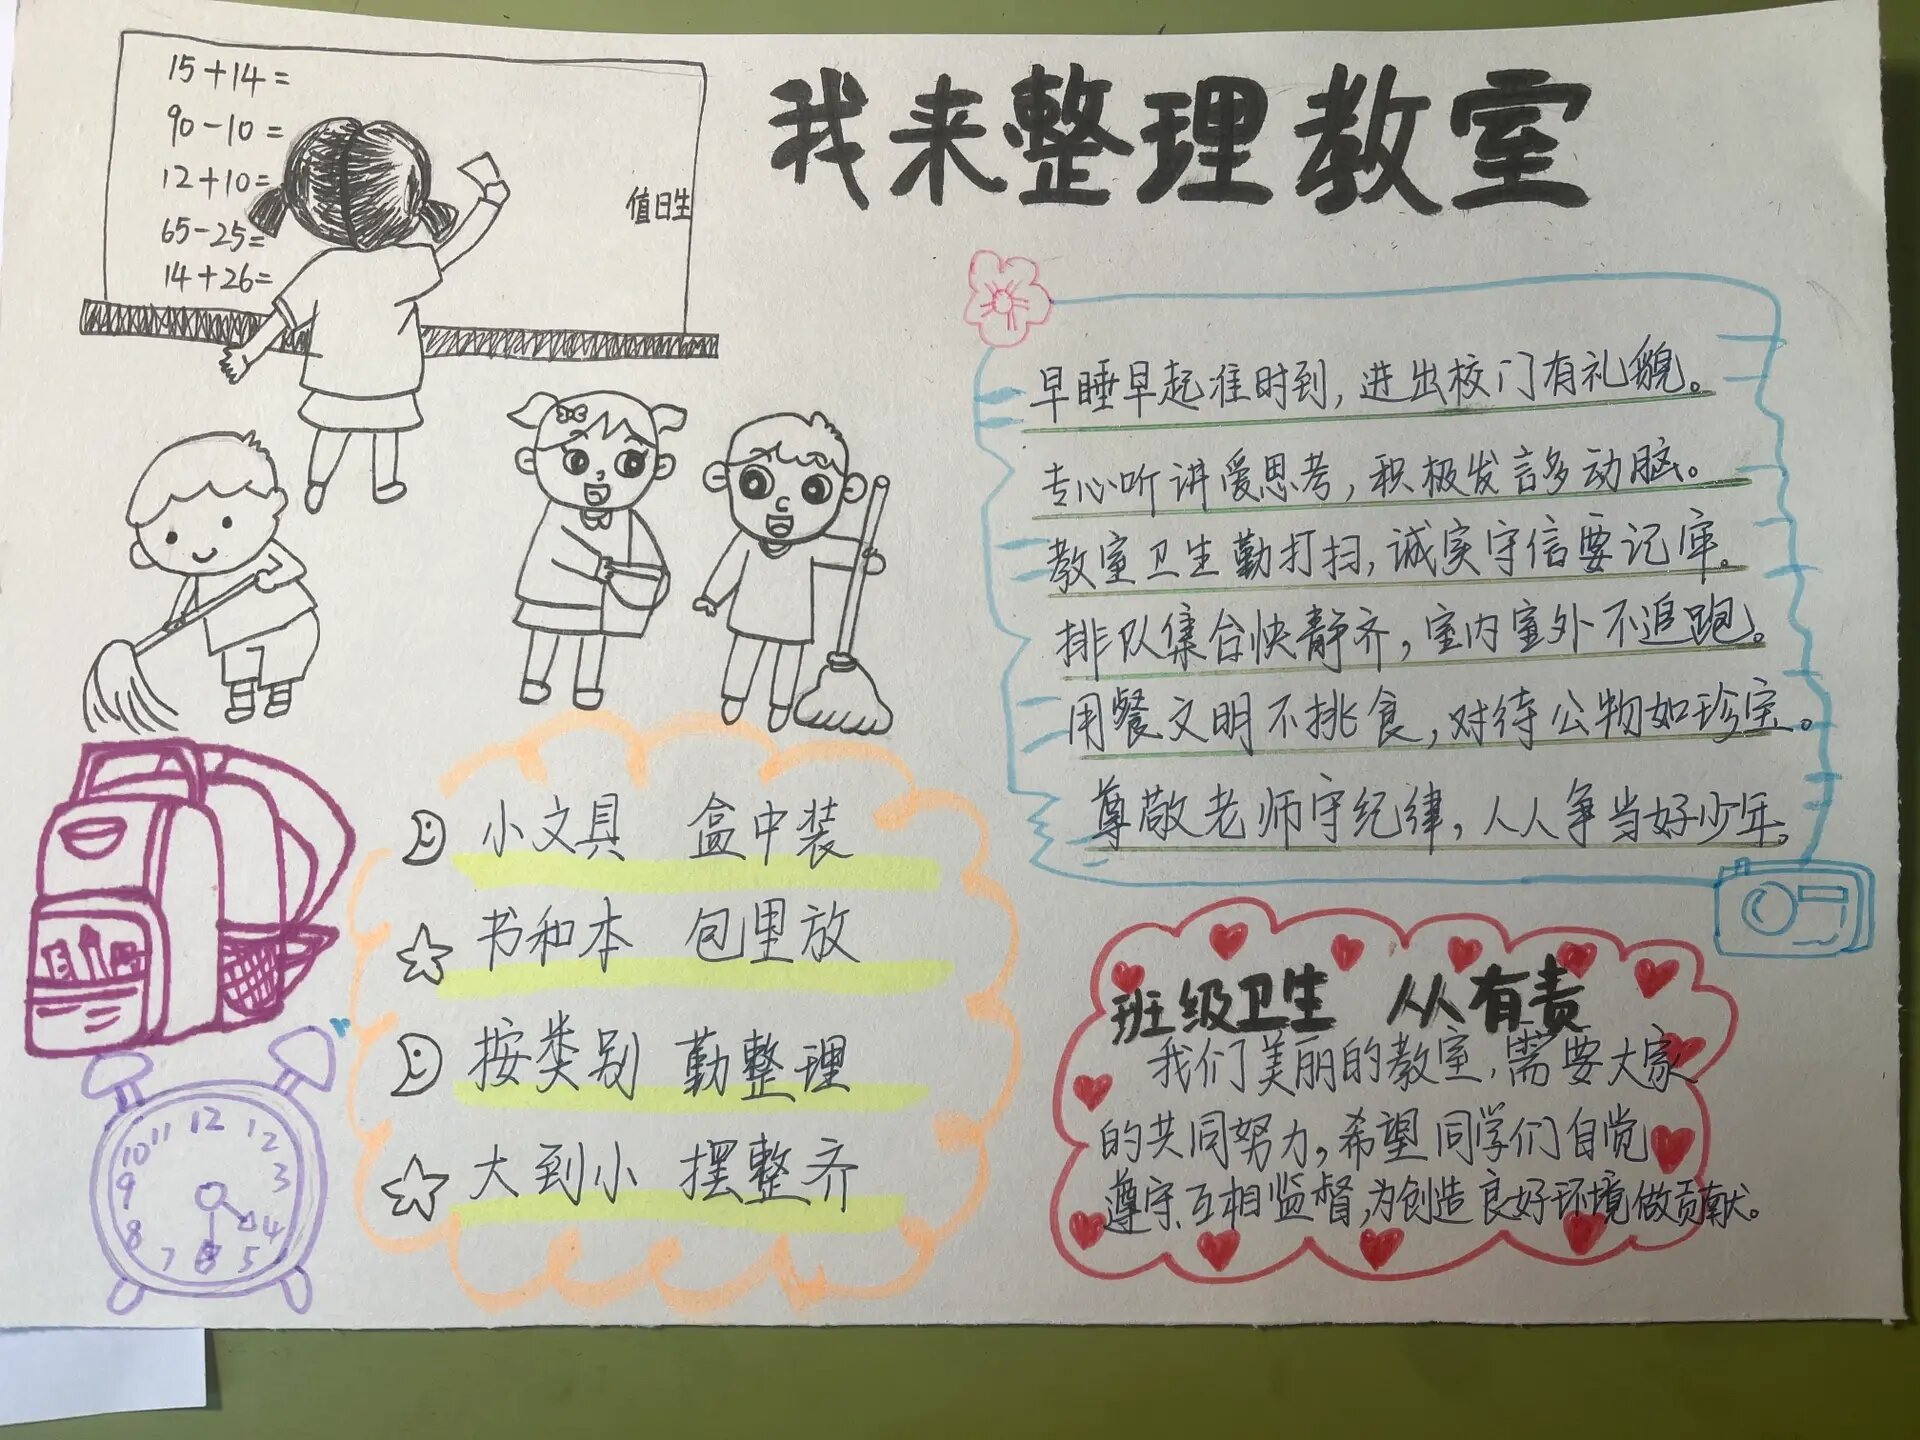 我来整理教室
15+14=
90-10=
12+10=
65-25=
14+26=
值日生
早睡早起准时到,进出校门有礼貌。
专心听讲爱思考,积极发言多动脑。
教室卫生勤打扫,诚实守信要记牢。
排队集合快静齐,室内室外不追跑。
用餐文明不挑食,对待公物如珍宝。
尊敬老师守纪律,人人争当好少年。
小文具 盒中装
书和本 包里放
按类别 勤整理
大到小 摆整齐
班级卫生 从从有责
我们美丽的教室,需要大家
的共同努力,希望同学们自觉
遵守、互相监督,为创造良好环境做贡献。
12
1
2
3
4
5
6
7
8
9
10
11